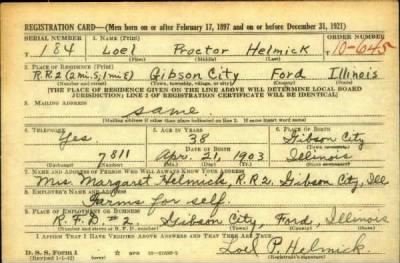 REGISTRATION CARD—(Men born on or after February 17, 1897 and on or before December 31, 1921)
SERIAL NUMBER 1. NAME (Print) ORDER NUMBER
184 Loel Proctor Helmick 10-645
(First) (Middle) (Last)
2. PLACE OF RESIDENCE (Print)
R.R.2 (2 mi. S; 1 mi E) Gibson City Ford Illinois
(Number and street) (Town, township, village, or city) (County) (State)
[THE PLACE OF RESIDENCE GIVEN ON THE LINE ABOVE WILL DETERMINE LOCAL BOARD
JURISDICTION; LINE 2 OF REGISTRATION CERTIFICATE WILL BE IDENTICAL]
3. MAILING ADDRESS
same.
[Mailing address if other than place indicated on line 2. If same insert word same]
4. TELEPHONE 5. AGE IN YEARS 6. PLACE OF BIRTH
Yes. 38 Gibson City
DATE OF BIRTH (Town or county)
7811 Apr. 21, 1903 Illinois
(Exchange) (Number) (Mo.) (Day) (Yr.) (State or country)
7. NAME AND ADDRESS OF PERSON WHO WILL ALWAYS KNOW YOUR ADDRESS
Mrs. Margaret Helmick, R.R.2. Gibson City, Ill
8. EMPLOYER'S NAME AND ADDRESS
Farms for self.
9. PLACE OF EMPLOYMENT OR BUSINESS
R.F.D #2. Gibson City, Ford, Illinois
(Number and street or R. F. D. number) (Town) (County) (State)
I AFFIRM THAT I HAVE VERIFIED ABOVE ANSWERS AND THAT THEY ARE TRUE.
D. S. S. Form 1 Loel P. Helmick.
(Revised 1-1-42) (over)